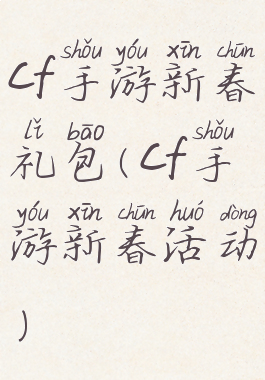 shǒu yóu xīn chūn
cf手游新春
lǐ bāo shǒu
礼包(cf手
yóu xīn chūn huó dòng
游新春活动
)